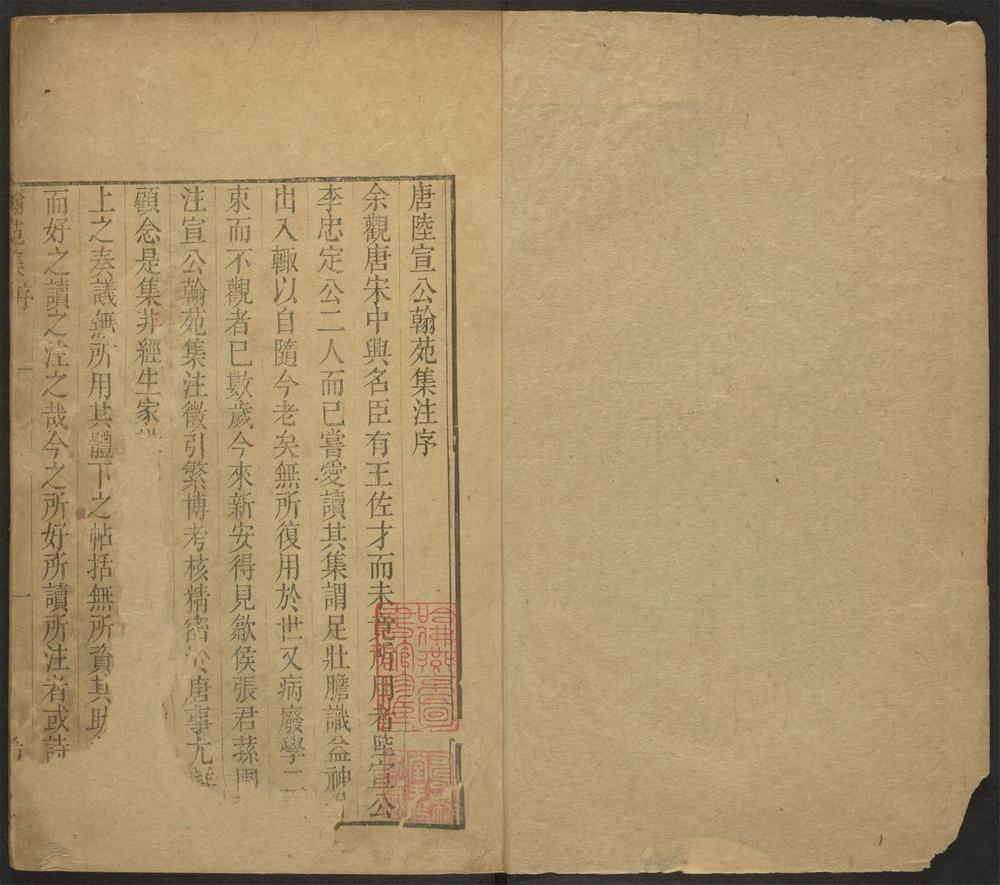 唐陸宣公翰苑集注序
余觀唐宋中興名臣有王佐才而未竟所用者陸宣公
李忠定公二人而已嘗愛讀其集謂足壯膽識益神
出入輙以自隨今老矣無所復用於世又病廢學二
束而不觀者已數歲今來新安得見歙侯張君蓀圃
注宣公翰苑集注徵引繁博考核精密於唐事尤詳
顧念是集非經生家
上之奏議無所用其體下之帖括無所資其助
而好之讀之注之哉今之所好所讀所注者或詩
翰苑集序 一